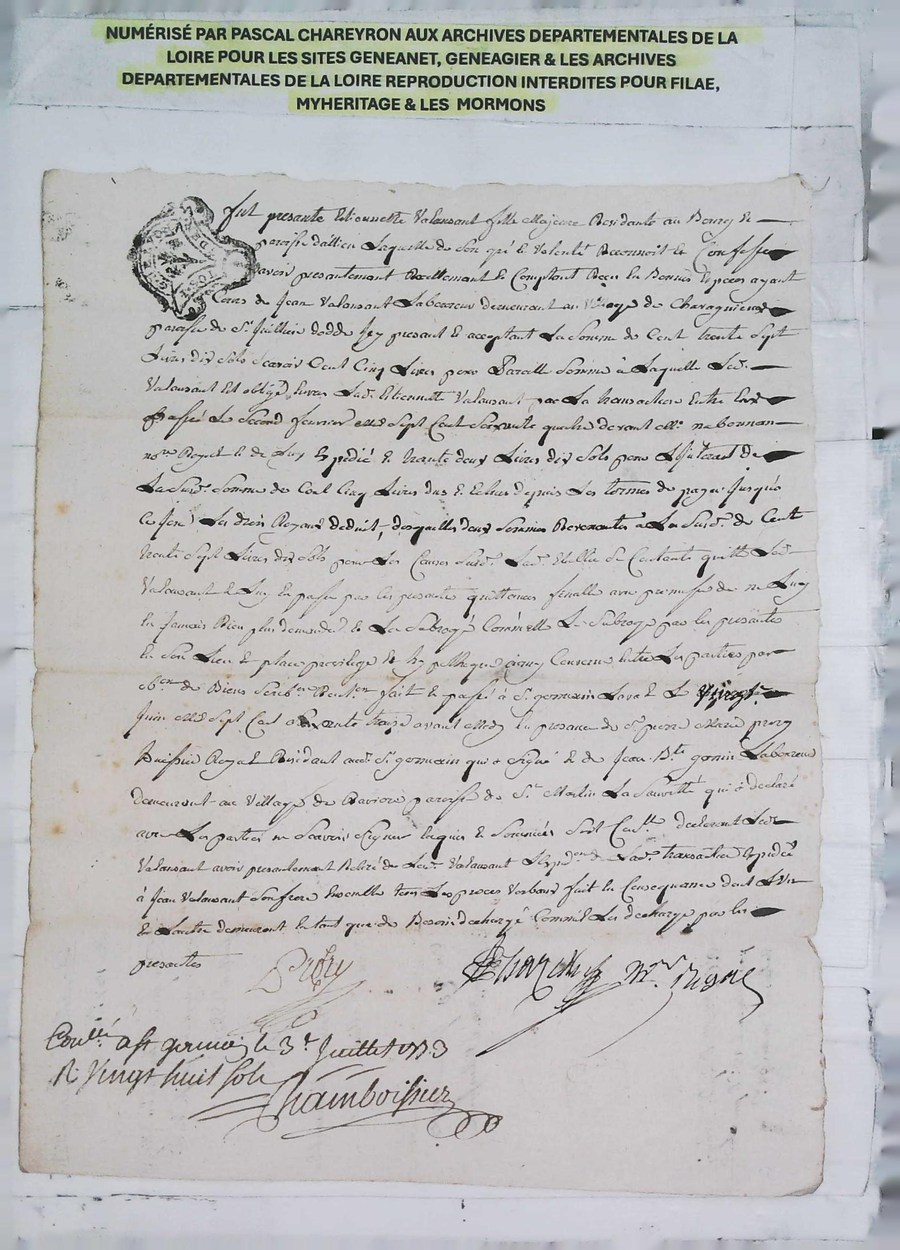 NUMÉRISÉ PAR PASCAL CHAREYRON AUX ARCHIVES DEPARTEMENTALES DE LA
LOIRE POUR LES SITES GENEANET, GENEAGIER & LES ARCHIVES
DEPARTEMENTALES DE LA LOIRE REPRODUCTION INTERDITES POUR FILAE,
MYHERITAGE & LES MORMONS
fut presante Etiennette Valansant fille Majeure Residante au Bourg &
paroisse dallieu Laquelle de son gré & Volonté Reconnoit & Confesse
avoir presantement Reellement & Comptant Reçu En Bonnes Especes ayant
Cours de Jean Valansant Laboureur demeurant au Village de
paroisse de St Jullien dodde Icy presant & acceptant La Somme de Cent trente Sept
Livres dix Sols Scavoir Cent Cinq Livres pour Pareille Somme à Laquelle Led.
Valansant Est obligé Envers Lad. Etiennette Valansant par La transaction Entre Eux
Passée Le Second fevrier mil Sept Cent Soixante quatre devant Me
nore Royal & de Luy Expedié & trente deux Livres dix Sols pour L'Interest de
La Susd. Somme de Cent Cinq Livres dus & Echus depuis Les termes de payer Jusques
Ce Jour Les droits Royaux deduit, desquelles deux Sommes Revenantes à La Susd. de Cent
trente Sept Livres dix Sols pour Les Causes Susd. Lad. Contente quitte Led.
Valansant & Luy En passe par Les presantes quittance finalle avec promesse de ne Luy
En Jamais Rien plus demander & La Subrogé Comm'elle Le Subroge par Les presantes
En Son Lieu & place privilege & hypotheque Entre Les parties par
de Biens fait & passé à St germain Laval Le
Juin mil Sept Cent Soixante treize avant midy En presance de Sr pierre Marie prory
huissier Royal Residant aud. St germain qui a Signé & de Jean Bte gonin Laboureur
demeurant au Village de Raviere paroisse de St Martin La Sauveté qui a declaré
avec Les parties ne Scavoir Signer Enquis & Sommées declarant Led.
Valansant avoir presantement Retiré de Lad. Valansant de Lad. transaction Expediée
à Jean Valansant Son frere Ensemble tous Les proces Verbaux fait En Consequance dont L'Un
& L'autre demeurent En tant que de Besoin dechargé Comm'il Les decharge par Les
presantes
Prory
Conllé a St germain le 3e Juillet 1773
R. Vingt huit sols
Chamboissier